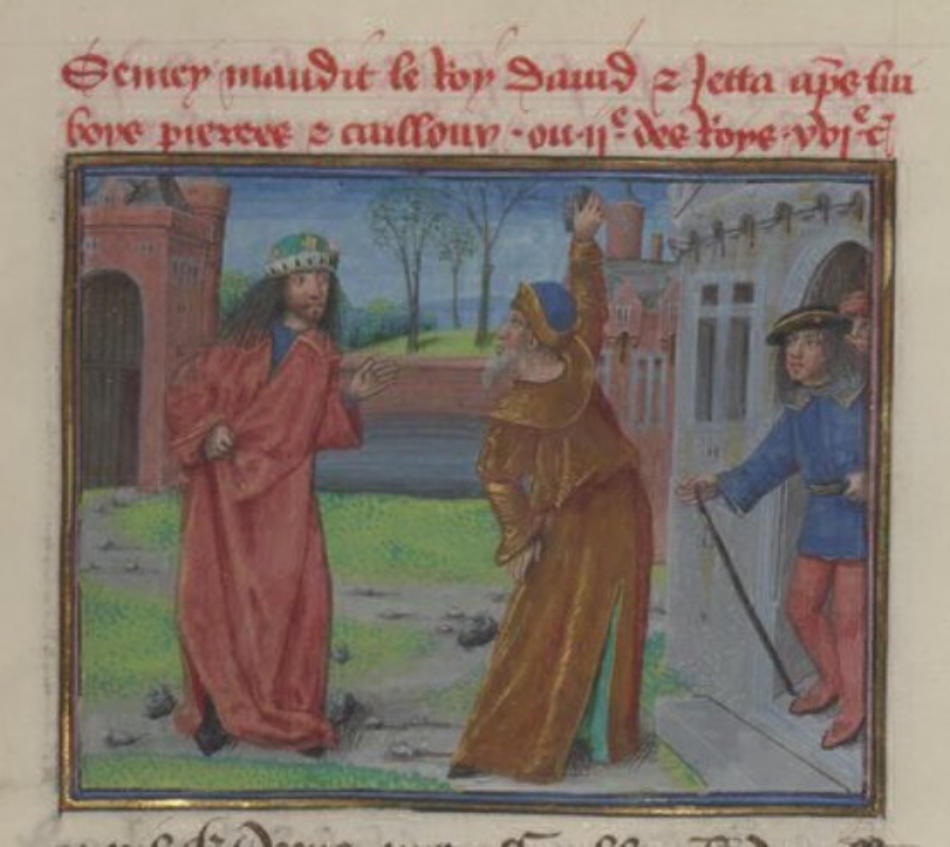 Semey maudit le Roy David & Jetta ap̃s lui
boye pierres & cailloux · ou · ijᵉ des Roys · xvjᵉ c̃